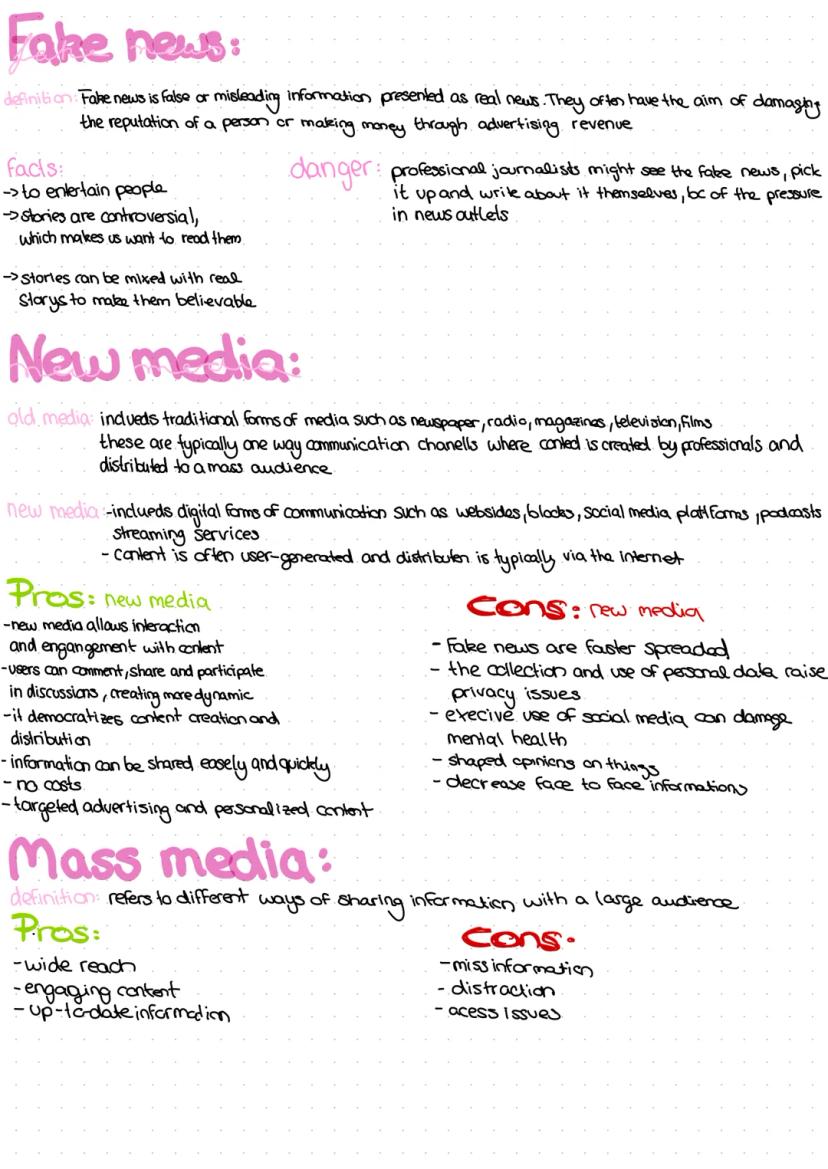 Fake news:
definition: Fake news is false or misleading information presented as real news. They often have the aim of damaging
the reputation of a person or making money through advertising revenue
facts:
-> to entertain people
-> stories are controversial,
which makes us want to read them
-> stories can be mixed with real
storys to make them believable
danger: professional journalists might see the fake news, pick
it up and write about it themselves, bc of the pressure
in news outlets
New media:
old media: indueds traditional forms of media such as newspaper, radio, magazines, television, films
these are typically one way communication chanells where conted is created by professionals and
distributed to a mass audience
new media: - inclueds digital forms of communication such as websides, blocks, social media platforms, podcasts
streaming services
- content is often user-generated and distributen is typically via the internet
Pros: new media
- new media allows interaction
and engangement with content
- users can comment, share and participate
in discussions, creating more dynamic
- it democratizes content creation and
distribution
- information can be shared easely and quickly
- no costs
- targeted advertising and personalized content
Cons: new media
- Fake news are faster spreaded
- the collection and use of personal data raise
privacy issues
- execive use of social media can damage
mental health
- shaped opinions on things
- decrease face to face informations
Mass media:
definition: refers to different ways of sharing information with a large audience
Pros:
- wide reach
- engaging content
- up-to-date information
Cons.
- miss information
- distraction
- acess issues